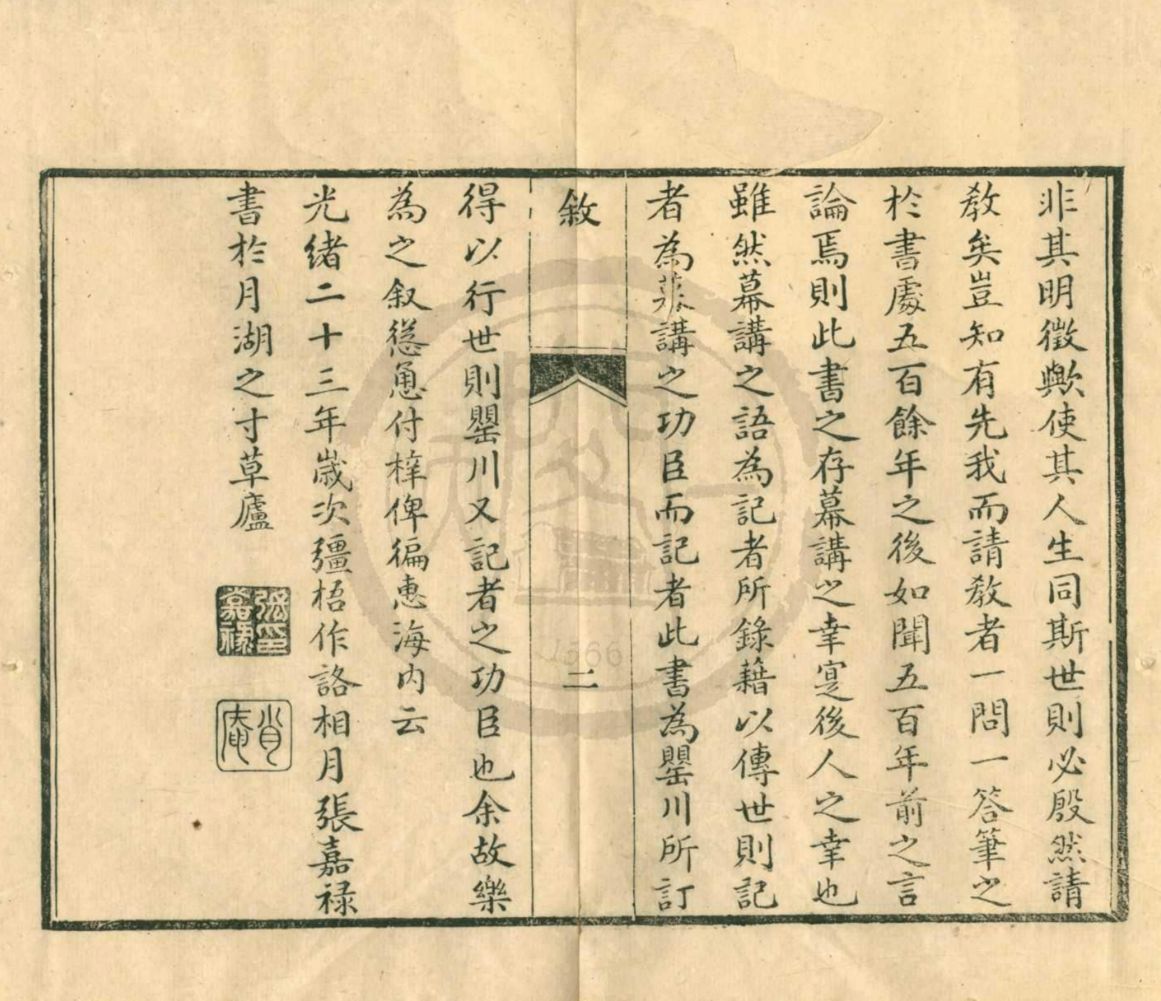 非其明徵歟使其人生同斯世則必殷然請
教矣豈知有先我而請教者一問一答筆之
於書處五百餘年之後如聞五百年前之言
論焉則此書之存幕講之幸寔後人之幸也
雖然幕講之語為記者所錄藉以傳世則記
者為幕講之功臣而記者此書為罌川所訂
敘
二
得以行世則罌川又記者之功臣也余故樂
為之叙慫恿付梓俾徧惠海内云
光緒二十三年歲次彊梧作詻相月張嘉禄
書於月湖之寸草廬
張印嘉祿
肖庵
1566